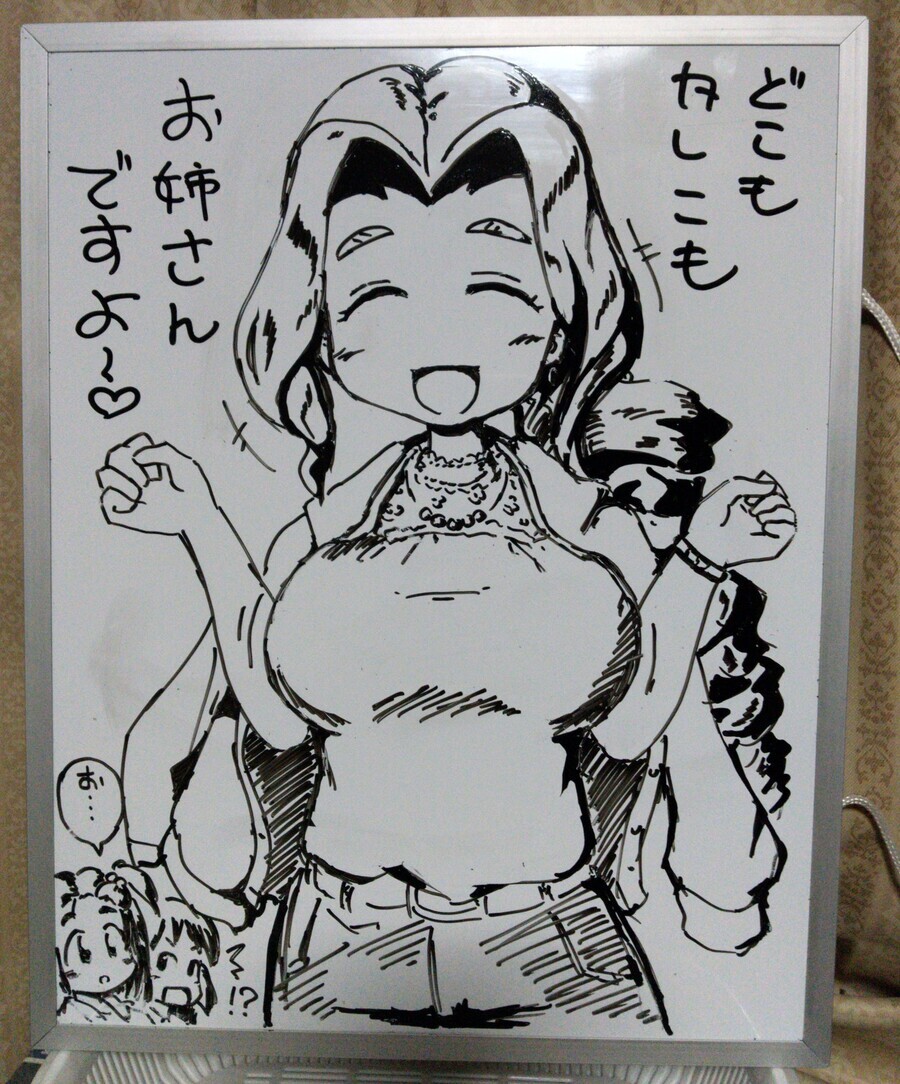 どこも
かしこも
お姉さん
ですよ～♡
お…
!?